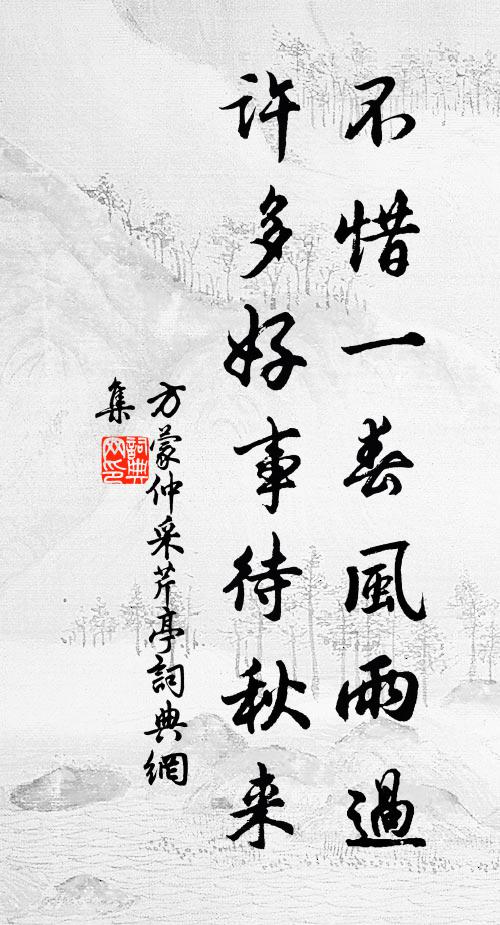 不惜一春風雨過
許多好事待秋来
方蒙仲采芹亭詞典網
集
詞典
网印